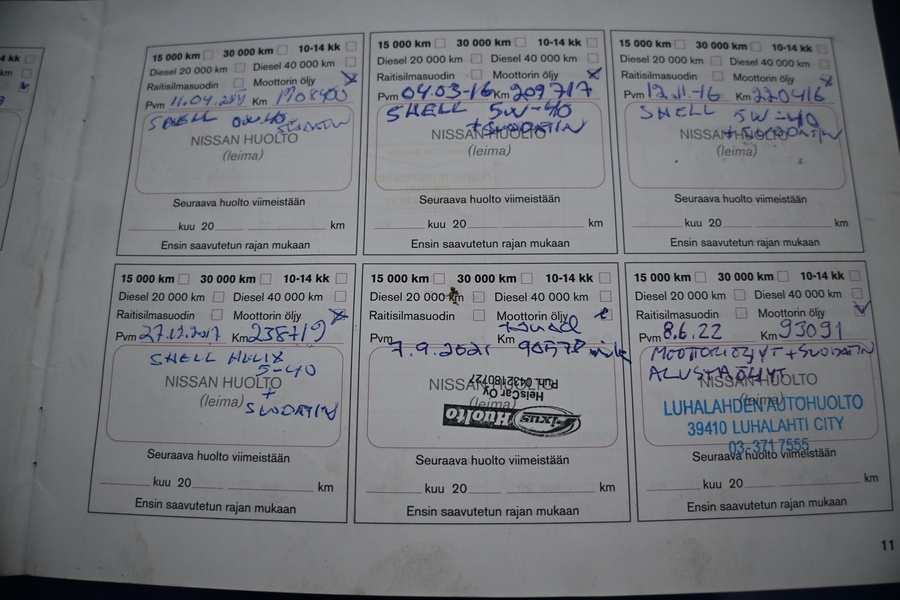 15 000 km 30 000 km 10-14 kk
Diesel 20 000 km Diesel 40 000 km
Raitisilmasuodin Moottorin öljy
Pvm 11.04. Km
SHELL
SUODATIN
NISSAN HUOLTO
(leima)
Seuraava huolto viimeistään
kuu 20 km
Ensin saavutetun rajan mukaan
15 000 km 30 000 km 10-14 kk
Diesel 20 000 km Diesel 40 000 km
Raitisilmasuodin Moottorin öljy
Pvm 04.03-16 Km 209717
SHELL 5W-40
+SUODATIN
NISSAN HUOLTO
(leima)
Seuraava huolto viimeistään
kuu 20 km
Ensin saavutetun rajan mukaan
15 000 km 30 000 km 10-14 kk
Diesel 20 000 km Diesel 40 000 km
Raitisilmasuodin Moottorin öljy
Pvm 12.11.-16 Km 220416
SHELL 5W-40
+SUODATIN
NISSAN HUOLTO
(leima)
Seuraava huolto viimeistään
kuu 20 km
Ensin saavutetun rajan mukaan
15 000 km 30 000 km 10-14 kk
Diesel 20 000 km Diesel 40 000 km
Raitisilmasuodin Moottorin öljy
Pvm 27.12.2017 Km 238719
SHELL HELIX
5-40
NISSAN HUOLTO
(leima)
+
SUODATIN
Seuraava huolto viimeistään
kuu 20 km
Ensin saavutetun rajan mukaan
15 000 km 30 000 km 10-14 kk
Diesel 20 000 km Diesel 40 000 km
Raitisilmasuodin Moottorin öljy
Pvm Km
7.9.2021 90578
NISSAN HUOLTO
(leima)
Fixus Huolto
HeisCar Oy
Puh. 0432180727
Seuraava huolto viimeistään
kuu 20 km
Ensin saavutetun rajan mukaan
15 000 km 30 000 km 10-14 kk
Diesel 20 000 km Diesel 40 000 km
Raitisilmasuodin Moottorin öljy
Pvm 8.6.22 Km 93091
MOOTTORIÖLJYT + SUODATIN
ALUSTAÖLJYT
NISSAN HUOLTO
(leima)
LUHALAHDEN AUTOHUOLTO
39410 LUHALAHTI CITY
03-3717555
Seuraava huolto viimeistään
kuu 20 km
Ensin saavutetun rajan mukaan
11